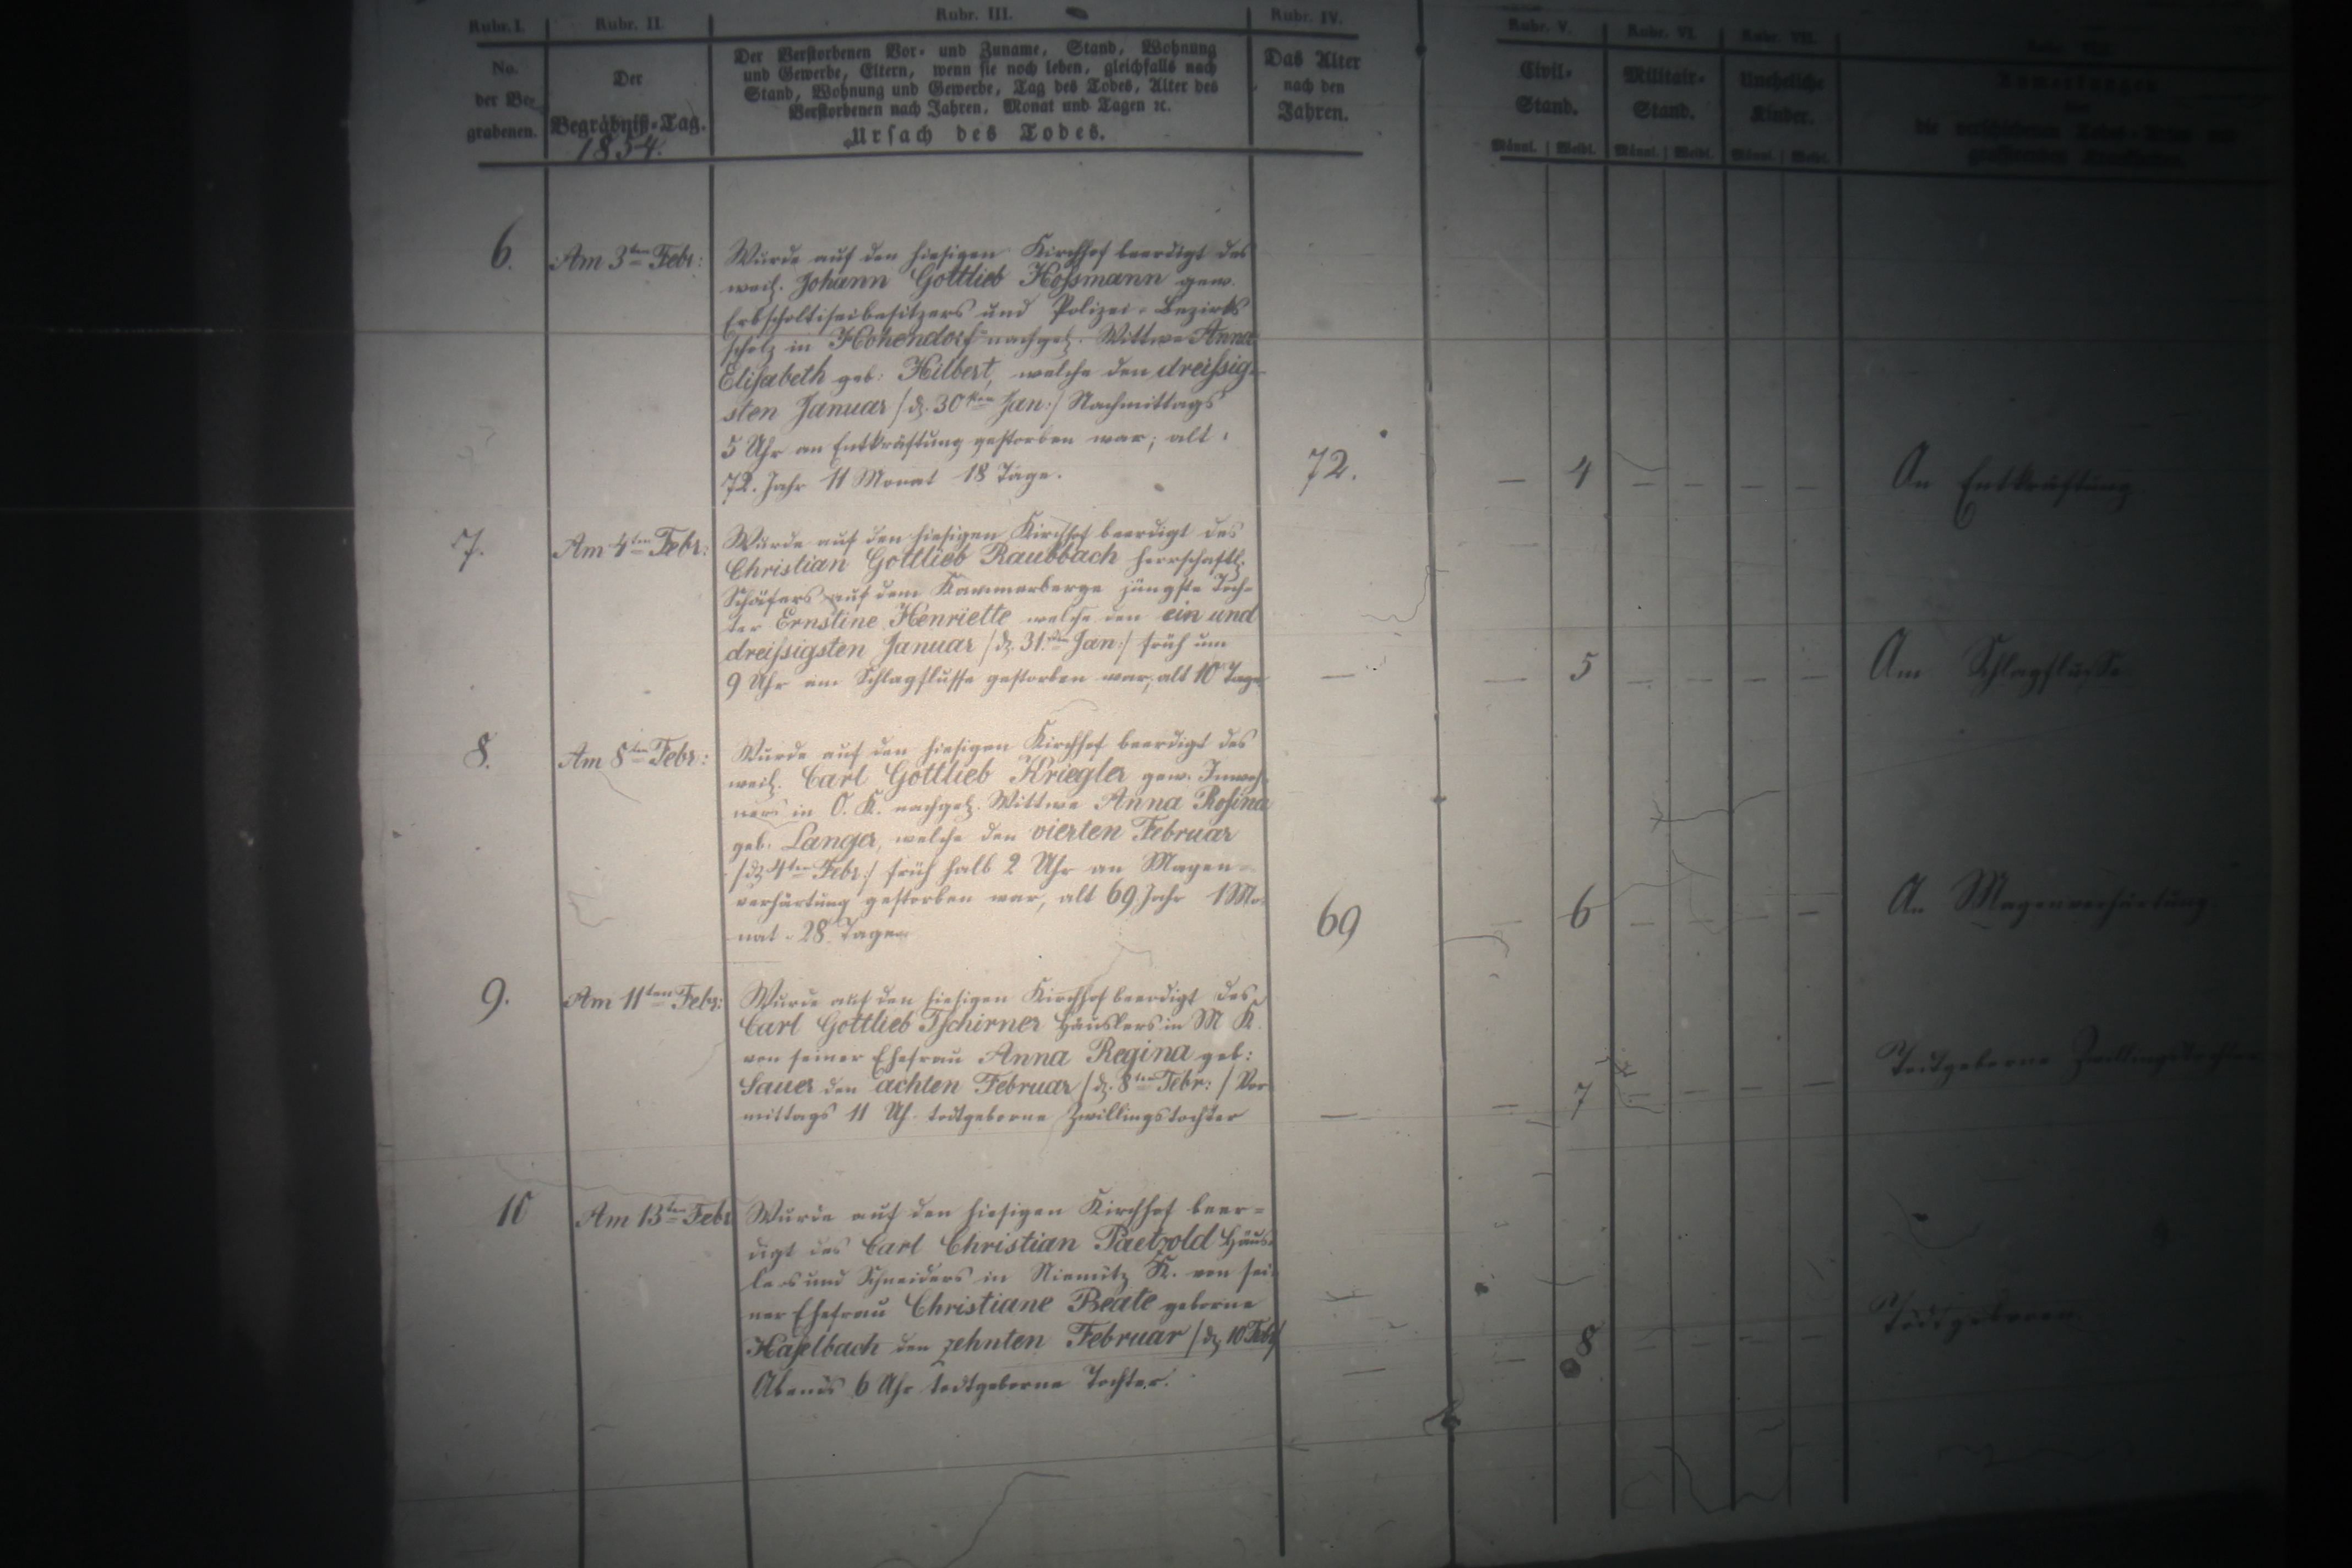 Rubr. I. Rubr. II. Rubr. III. Rubr. IV. Rubr. V. Rubr. VI. Rubr. VII.
No.
der Be-
grabenen.
Der
Begräbniß-Tag.
1854.
Der Verstorbenen Vor- und Zuname, Stand, Wohnung
und Gewerbe, Eltern, wenn sie noch leben, gleichfalls nach
Stand, Wohnung und Gewerbe, Tag des Todes, Alter des
Verstorbenen nach Jahren, Monat und Tagen ꝛc.
Ursach des Todes.
Das Alter
nach den
Jahren.
Civil-
Stand.
Männl. Weibl.
Militair-
Stand.
Männl. Weibl.
Uneheliche
Kinder.
Männl. Weibl.
Anmerkungen
die verschiedenen Todes-Arten und
grassirenden Krankheiten.
6. Am 3ten Febr:
Wurde auf den hiesigen Kirchhof beerdigt des
weil. Johann Gottlieb Hoffmann gew.
Erbscholtiseibesitzers und Polizei-Bezirks
scholz in Hohendorf nachgel. Wittwe Anna
Elisabeth geb: Hilbert, welche den dreissig-
sten Januar /: d. 30ten Jan:/ Nachmittags
5 Uhr an Entkräftung gestorben war; alt:
72. Jahr 11 Monat 18 Tage.
72. — 4 — — — — An Entkräftung.
7. Am 4ten Febr:
Wurde auf den hiesigen Kirchhof beerdigt des
Christian Gottlieb Raubbach herrschaftl.
Schäfers auf dem Kammerberge jüngste Toch-
ter Ernstine Henriette welche den ein und
dreissigsten Januar /: d. 31ten Jan:/ früh um
9 Uhr am Schlagflusse gestorben war; alt 10 Tage
— — 5 — — — — Am Schlagflusse
8. Am 8ten Febr:
Wurde auf den hiesigen Kirchhof beerdigt des
weil. Carl Gottlieb Kriegler gew. Inwoh-
ners in O. K. nachgel. Wittwe Anna Rosina
geb. Langer, welche den vierten Februar
/: d. 4ten Febr:/ früh halb 2 Uhr an Magen-
verhärtung gestorben war, alt 69 Jahr 1 Mo-
nat 28 Tage
69 — 6 — — — — An Magenverhärtung
9. Am 11ten Febr:
Wurde auf den hiesigen Kirchhof beerdigt des
Carl Gottlieb Tschirner Häuslers in M K.
von seiner Ehefrau Anna Regina geb:
Sauer den achten Februar /: d. 8ten Febr:/ Vor
mittags 11 Uh. todtgeborne Zwillingstochter
— — 7 — — — — Todtgeborne Zwillingstochter
10 Am 13ten Febr
Wurde auf den hiesigen Kirchhof beer-
digt des Carl Christian Paetzold Häus-
lers und Schneiders in K. von sei-
ner Ehefrau Christiane Beate geborne
Haselbach den zehnten Februar /: d. 10 Febr/
Abends 6 Uhr todtgeborne Tochter.
— — 8 — — — — Todtgeboren